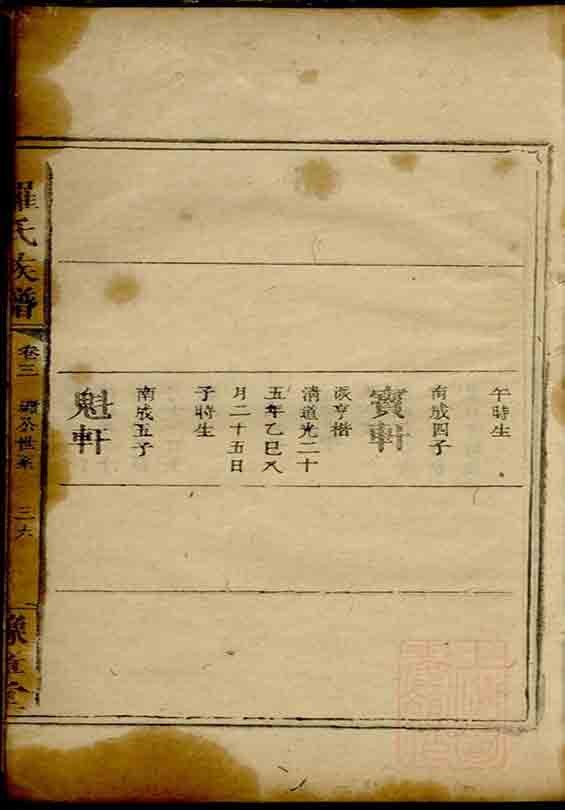 午時生
南成四子
寶軒
派亨楷
清道光二十
五年乙巳八
月二十五日
子時生
南成五子
魁軒
羅氏族譜
卷三
世系
三六
豫章堂